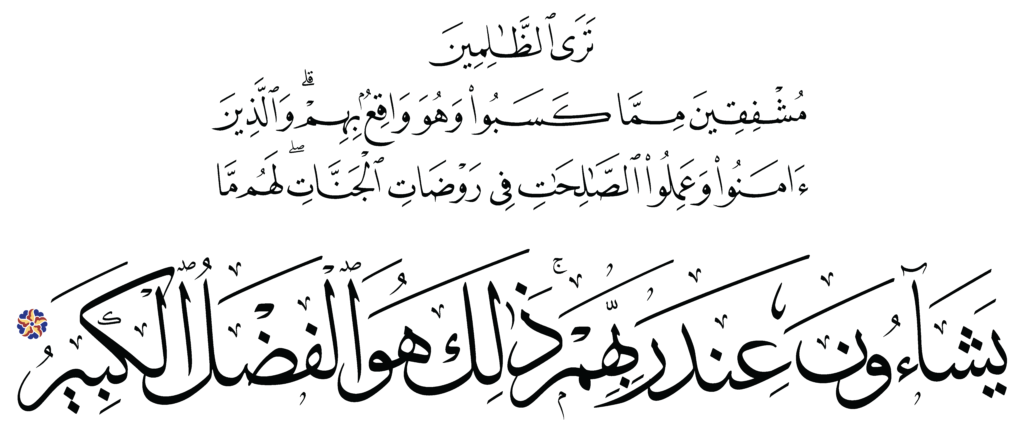 تَرَى ٱلظَّٰلِمِينَ
مُشْفِقِينَ مِمَّا كَسَبُوا۟ وَهُوَ وَاقِعٌۢ بِهِمْ ۗ وَٱلَّذِينَ
ءَامَنُوا۟ وَعَمِلُوا۟ ٱلصَّٰلِحَٰتِ فِى رَوْضَاتِ ٱلْجَنَّاتِ ۖ لَهُم مَّا
يَشَآءُونَ عِندَ رَبِّهِمْ ۚ ذَٰلِكَ هُوَ ٱلْفَضْلُ ٱلْكَبِيرُ